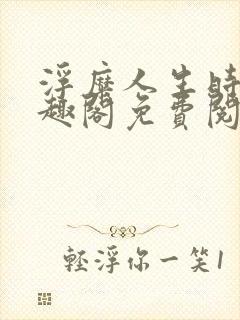 浮靡人生時
趣閣免費閱
輕浮你一笑1